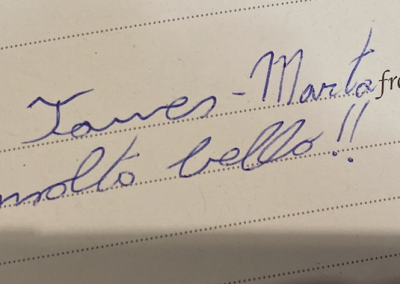 Tawes - Marta fro
molto bello!!